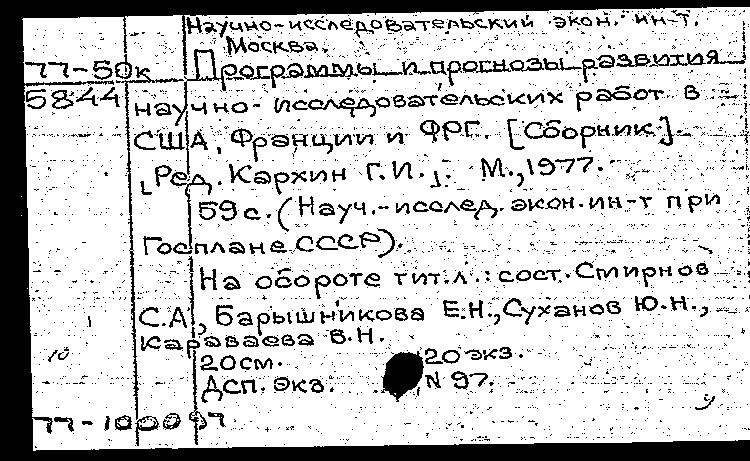 Научно-исследовательский экон. ин-т.
Москва.
77-50к Программы и прогнозы развития
5844 научно-исследовательских работ в
США, Франции и ФРГ. [Сборник]
[Ред. Кархин Г.И.]. М., 1977.
59 с. (Науч.-исслед. экон. ин-т при
Госплане СССР).
На обороте тит.л.: сост. Смирнов
С.А., Барышникова Е.Н., Суханов Ю.Н.,
Караваева В.Н.
10
20см. 20 экз.
ДСП. Экз. N 97.
у
77-100097